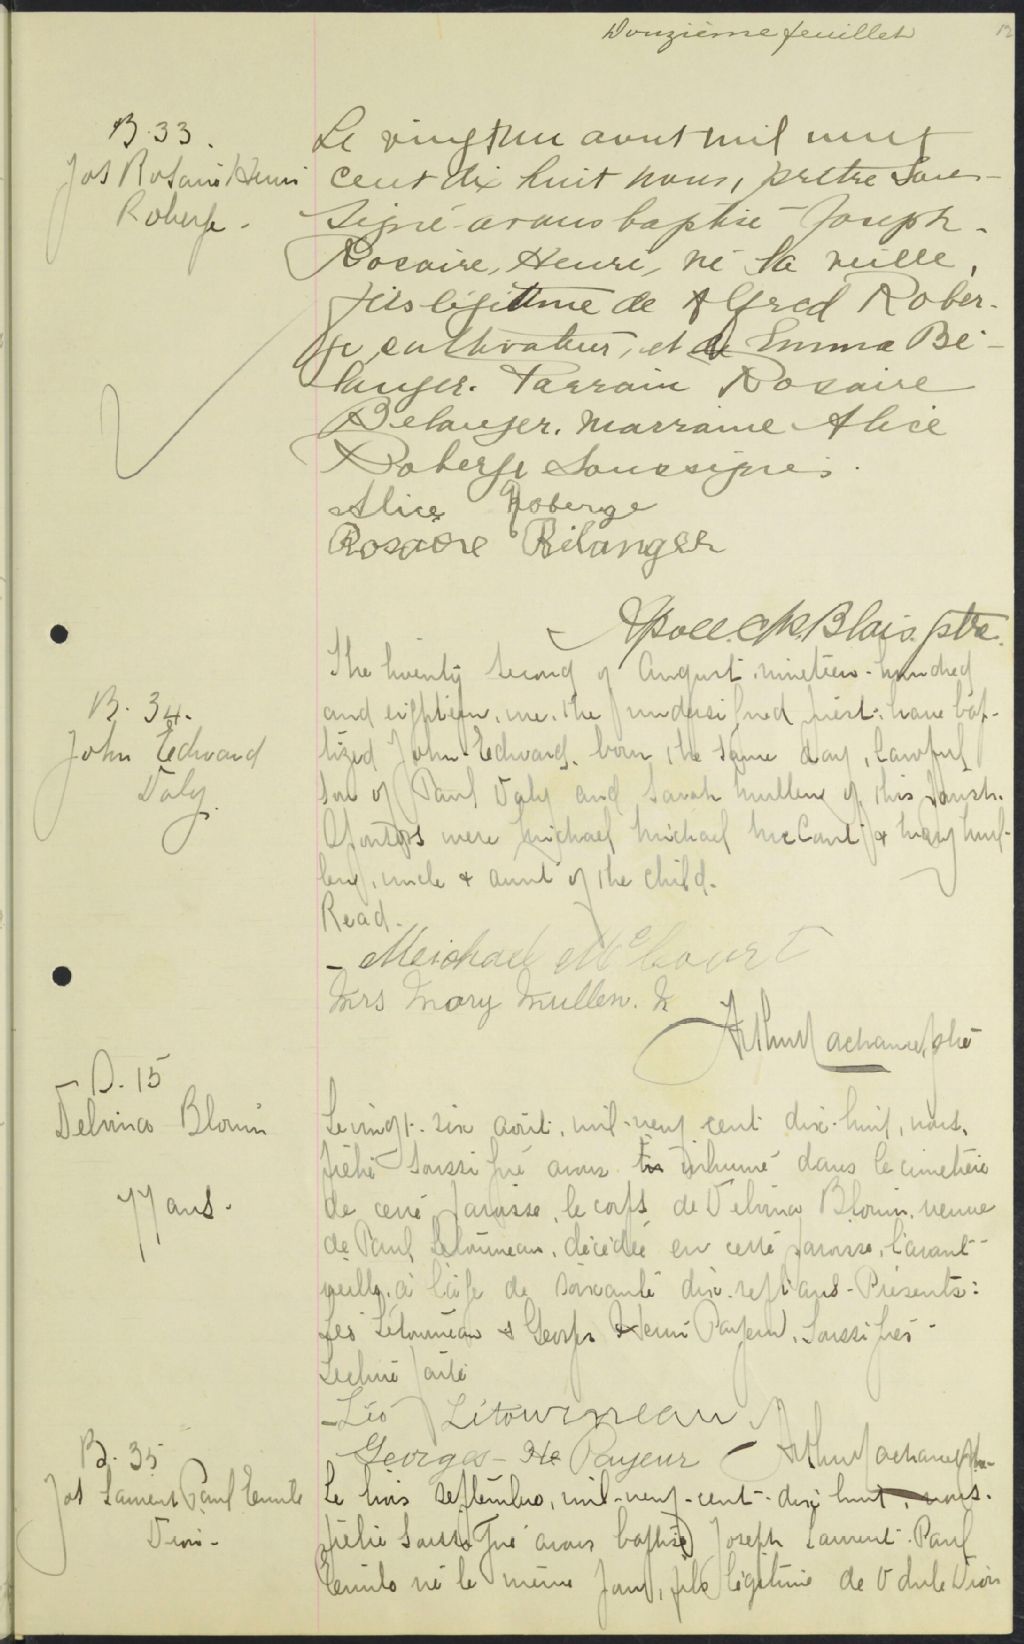 Douzième feuillet
12
B. 33.
Jos Rosario Henri
Roberge.
Le vingt un aout mil neuf
cent dix huit nous, prêtre sous-
signé avons baptisé Joseph.
Rosaire, Henri, né la veille,
fils légitime de Alfred Rober-
ge, cultivateur, et de Emma Bé-
langer. Parrain Rosaire
Belanger. marraine Alice
Roberge soussignés.
Alice Roberge
Rosaire Bélanger
Blais ptre.
B. 34.
John Edward
Daly
The twenty second of August, nineteen-hundred
and eighteen, we, the undersigned priest, have bap-
tized John Edward, born the same day, lawful
son of Paul Daly and Sarah Mullen of this parish.
Sponsors were Michael Michael McCourt & Mary Mul-
len, uncle & aunt of the child.
Read.
Meichael McCourt
Mrs Mary Mullen. M
Arthur Lachance, ptre
D. 15
Delvina Blouin
77 ans.
Le vingt-six août, mil-neuf cent dix-huit, nous,
prêtre soussigné avons inhumé dans le cimetière
de cette paroisse, le corps de Delvina Blouin, veuve
de Paul Létourneau, décédée en cette paroisse, l'avant-
veille, à l'âge de soixante dix-sept ans. Présents:
Léo Létourneau & Georges Henri Payeur, soussignés.
Lecture faite
Léo Létourneau
Georges-He Payeur Arthur Lachance Ptre
B. 35
Jos Laurent Paul Emile
Dion.
Le trois septembre, mil-neuf-cent-dix huit, nous.
prêtre soussigné avons baptisé Joseph Laurent Paul
Emile né le même jour, fils légitime de Dion